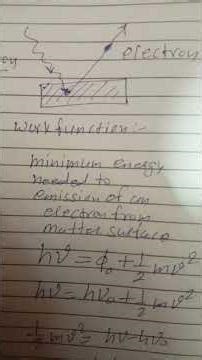 electron
work function:-
minimum energy
needed to
emission of an
electron from
matter surface
hν = ϕ₀ + 1/2 mv²
hν = hν₀ + 1/2 mv²
1/2 mv² = hν - hν₀